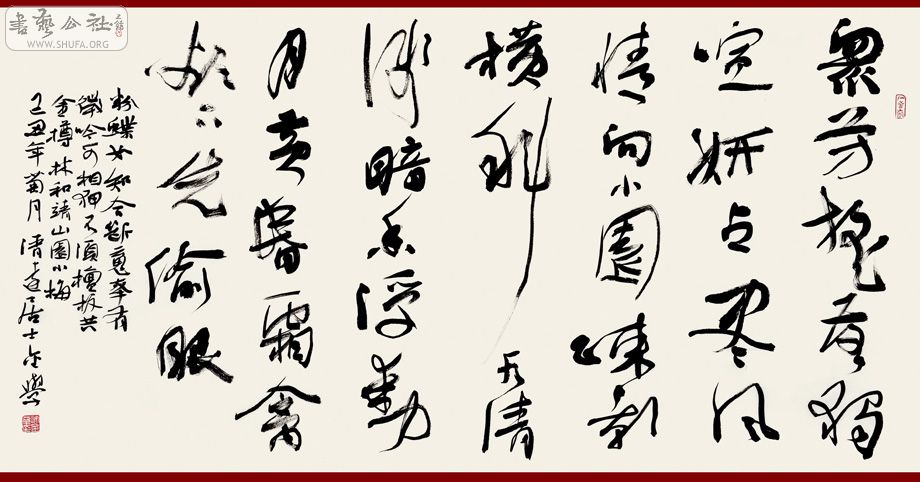 眾芳搖落獨
喧妍占盡風
情向小園疎影
橫斜水清
淺暗香浮動
月黃昏霜禽
欲下先偷眼
粉蝶如知合斷魂幸有
微吟可相狎不須檀板共
金樽 林和靖山園小梅
己丑年菊月清居士
書藝公社
WWW.SHUFA.ORG